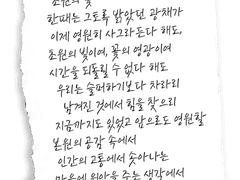 초원의 빛
한때는 그토록 밝았던 광채가
이제 영원히 사그라든다 해도,
초원의 빛이여, 꽃의 영광이여
시간을 되돌릴 수 없다 해도
우리는 슬퍼하기보다 차라리
남겨진 것에서 힘을 찾으리
지금까지도 있었고 앞으로도 영원할
본원의 공감 속에서
인간의 고통에서 솟아나는
마음에 위안을 주는 생각에서